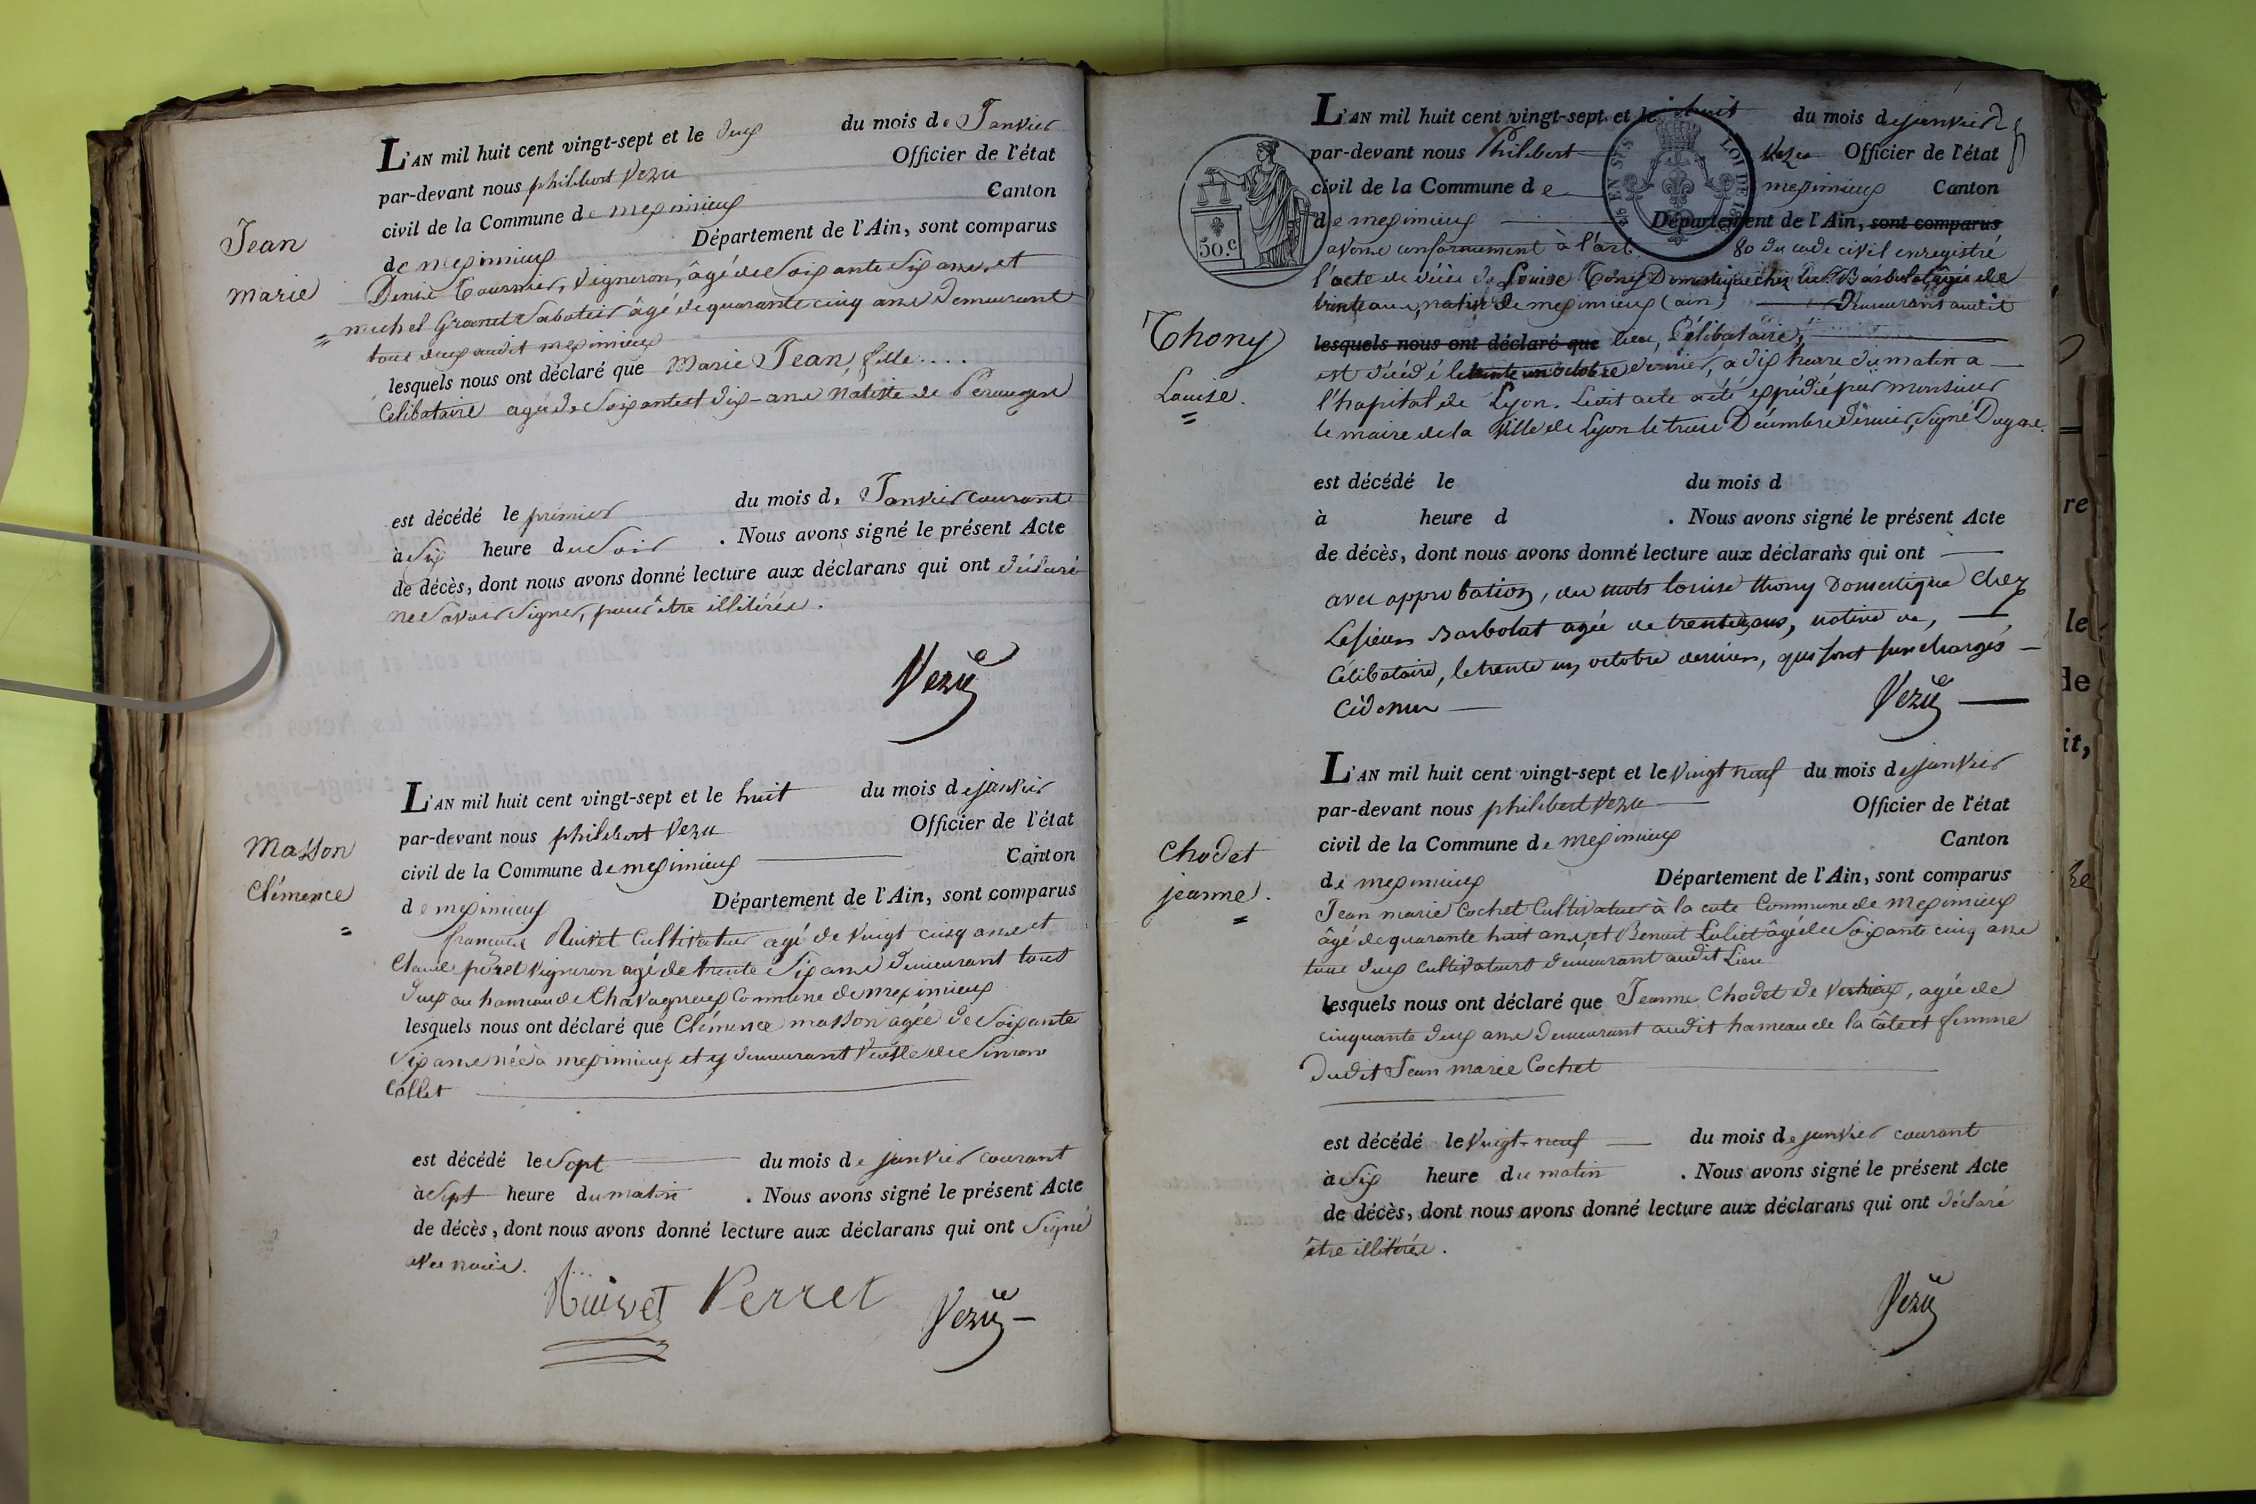 Jean
Marie
=
L'AN mil huit cent vingt-sept et le deux du mois de Janvier
par-devant nous philibert Vezu Officier de l'état
civil de la Commune de meximieux Canton
de meximieux Département de l'Ain, sont comparus
Denis Tournier, Vigneron, âgé de Soixante Six ans, et
michel Grand Sabotier âgé de quarante cinq ans Demeurant
tous deux audit meximieux
lesquels nous ont déclaré que Marie Jean, fille ....
Célibataire agée de Soixante et dix-ans Native de Pérouges
est décédé le premier du mois de Janvier courant
à Six heure du Soir . Nous avons signé le présent Acte
de décès, dont nous avons donné lecture aux déclarans qui ont déclaré
ne Savoir Signer, pour être illitérés.
Vezu
Masson
Clémence
=
L'AN mil huit cent vingt-sept et le huit du mois de janvier
par-devant nous philibert Vezu Officier de l'état
civil de la Commune de meximieux Canton
de meximieux Département de l'Ain, sont comparus
françois Ruivet Cultivateur agé de vingt cinq ans et
Claude Vigneron agé de trente Six ans demeurant tout
deux au hameau de Chavagneux Commune de meximieux
lesquels nous ont déclaré que Clémence masson agée de Soixante
Six ans née à meximieux et y demeurant Veuve de Simon
Collet
est décédé le Sept du mois de janvier courant
à Sept heure du matin . Nous avons signé le présent Acte
de décès, dont nous avons donné lecture aux déclarans qui ont Signé
avec nous.
Ruivet Perret Vezu
L'AN mil huit cent vingt-sept et le huit du mois de janvier
par-devant nous Philibert Vezu Officier de l'état
civil de la Commune de meximieux Canton
de meximieux Département de l'Ain, sont comparus
50.c
LOI DE
avons conformément à l'art. 80 du code civil enregistré
l'acte de décès de Louise Thony Domestique chez le Sr Barbolat agée de
trente ans, native de meximieux (ain) Demeurant audit
Thony
Louise.
=
lesquels nous ont déclaré que lieu, Célibataire,
est décédé le trente un octobre dernier, à dix heure du matin a
l'hopital de Lyon. Ledit acte a été expédié par monsieur
le maire de la Ville de Lyon le treize Décembre dernier, Signé Dugas.
est décédé le du mois d
à heure d . Nous avons signé le présent Acte
de décès, dont nous avons donné lecture aux déclarans qui ont
avec approbation, des mots louise thony Domestique chez
Lesieur Barbolat agée de trente ans, native de,
Célibataire, le trente un octobre dernier, qui sont surchargés
Cidessus
Vezu
Chodet
jeanne.
=
L'AN mil huit cent vingt-sept et le Vingt neuf du mois de janvier
par-devant nous philibert Vezu Officier de l'état
civil de la Commune de meximieux Canton
de meximieux Département de l'Ain, sont comparus
Jean marie Cochet Cultivateur à la cote Commune de meximieux
âgé de quarante huit ans, et Benoit âgé de Soixante cinq ans
tous deux Cultivateurs demeurant audit Lieu
lesquels nous ont déclaré que Jeanne Chodet de , agée de
cinquante deux ans demeurant audit hameau de la côte et femme
dudit Jean marie Cochet
est décédé le Vingt-neuf du mois de janvier courant
à Six heure du matin . Nous avons signé le présent Acte
de décès, dont nous avons donné lecture aux déclarans qui ont déclaré
être illitérés.
Vezu
re
le
de
it,